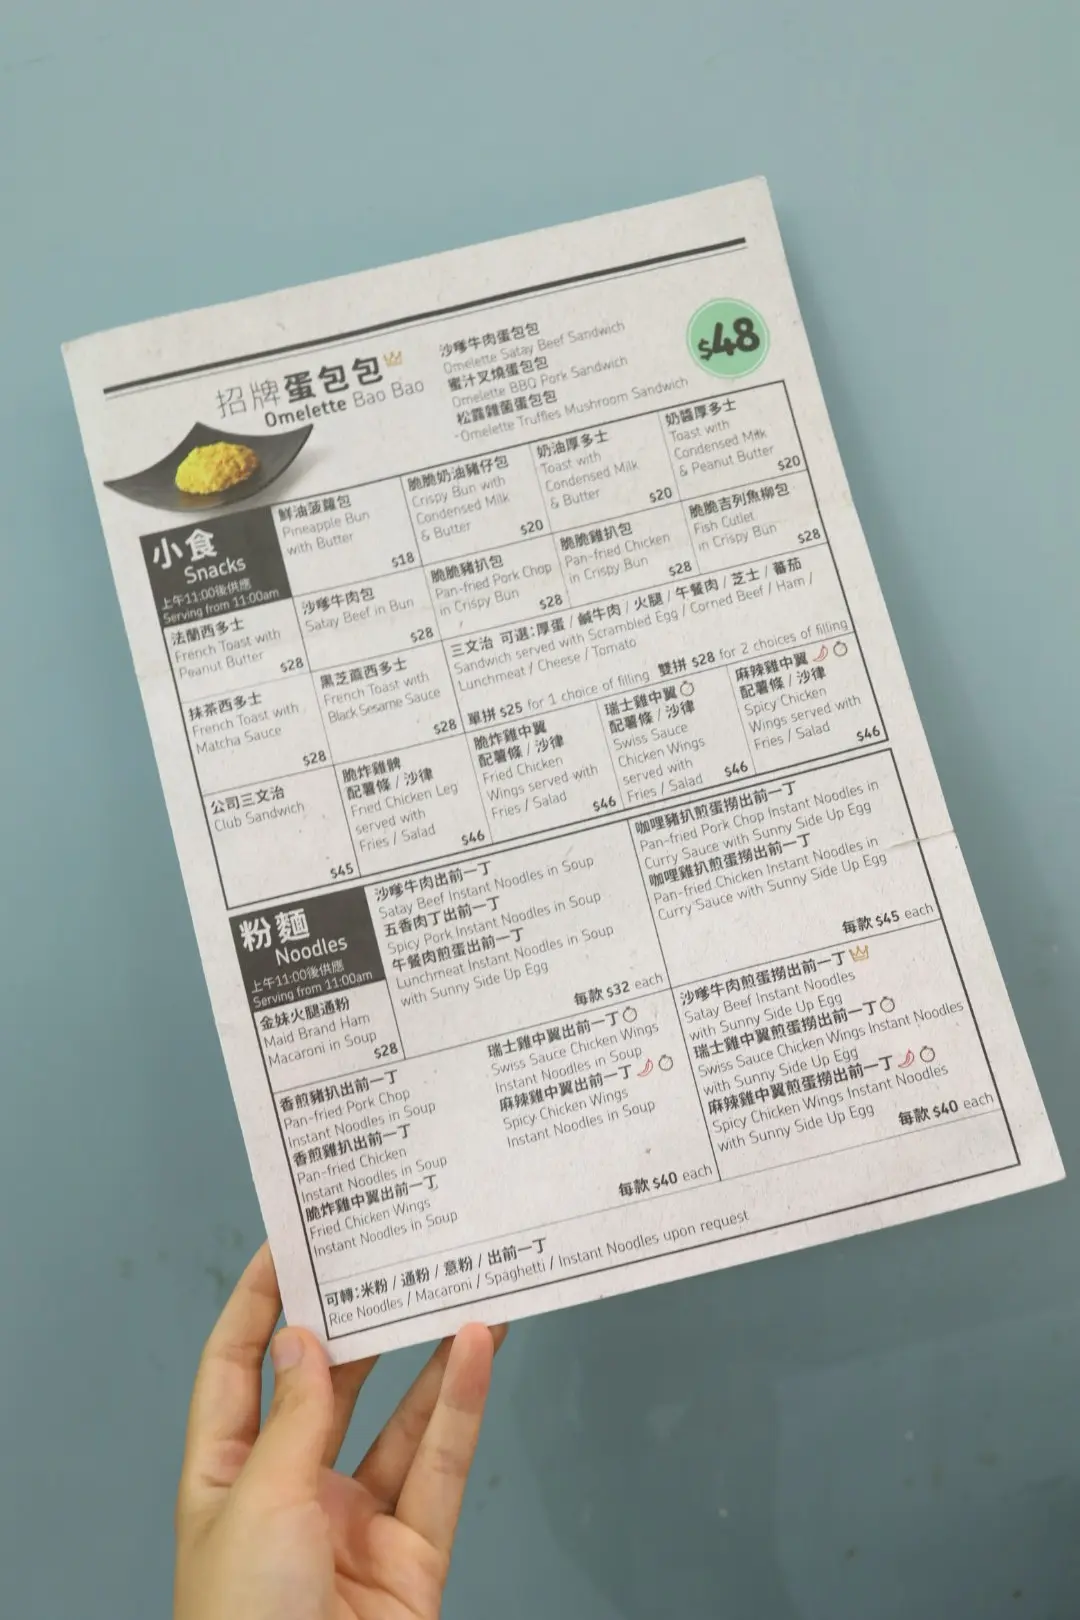 招牌蛋包包
Omelette Bao Bao
沙嗲牛肉蛋包包
Omelette Satay Beef Sandwich
蜜汁叉燒蛋包包
Omelette BBQ Pork Sandwich
松露雜菌蛋包包
-Omelette Truffles Mushroom Sandwich
$48
小食
Snacks
上午11:00後供應
Serving from 11:00am
鮮油菠蘿包
Pineapple Bun
with Butter
$18
脆脆奶油豬仔包
Crispy Bun with
Condensed Milk
& Butter
$20
奶油厚多士
Toast with
Condensed Milk
& Butter
$20
奶醬厚多士
Toast with
Condensed Milk
& Peanut Butter
$20
法蘭西多士
French Toast with
Peanut Butter
$28
沙嗲牛肉包
Satay Beef in Bun
$28
脆脆豬扒包
Pan-fried Pork Chop
in Crispy Bun
$28
脆脆雞扒包
Pan-fried Chicken
in Crispy Bun
$28
脆脆吉列魚柳包
Fish Cutlet
in Crispy Bun
$28
抹茶西多士
French Toast with
Matcha Sauce
$28
黑芝蔴西多士
French Toast with
Black Sesame Sauce
$28
三文治 可選：厚蛋 / 鹹牛肉 / 火腿 / 午餐肉 / 芝士 / 蕃茄
Sandwich served with Scrambled Egg / Corned Beef / Ham /
Lunchmeat / Cheese / Tomato
單拼 $25 for 1 choice of filling 雙拼 $28 for 2 choices of filling
公司三文治
Club Sandwich
$45
脆炸雞髀
配薯條 / 沙律
Fried Chicken Leg
served with
Fries / Salad
$46
脆炸雞中翼
配薯條 / 沙律
Fried Chicken
Wings served with
Fries / Salad
$46
瑞士雞中翼
配薯條 / 沙律
Swiss Sauce
Chicken Wings
served with
Fries / Salad
$46
麻辣雞中翼
配薯條 / 沙律
Spicy Chicken
Wings served with
Fries / Salad
$46
粉麵
Noodles
上午11:00後供應
Serving from 11:00am
金妹火腿通粉
Maid Brand Ham
Macaroni in Soup
$28
沙嗲牛肉出前一丁
Satay Beef Instant Noodles in Soup
五香肉丁出前一丁
Spicy Pork Instant Noodles in Soup
午餐肉煎蛋出前一丁
Lunchmeat Instant Noodles in Soup
with Sunny Side Up Egg
每款 $32 each
咖哩豬扒煎蛋撈出前一丁
Pan-fried Pork Chop Instant Noodles in
Curry Sauce with Sunny Side Up Egg
咖哩雞扒煎蛋撈出前一丁
Pan-fried Chicken Instant Noodles in
Curry Sauce with Sunny Side Up Egg
每款 $45 each
香煎豬扒出前一丁
Pan-fried Pork Chop
Instant Noodles in Soup
香煎雞扒出前一丁
Pan-fried Chicken
Instant Noodles in Soup
脆炸雞中翼出前一丁
Fried Chicken Wings
Instant Noodles in Soup
瑞士雞中翼出前一丁
Swiss Sauce Chicken Wings
Instant Noodles in Soup
麻辣雞中翼出前一丁
Spicy Chicken Wings
Instant Noodles in Soup
每款 $40 each
沙嗲牛肉煎蛋撈出前一丁
Satay Beef Instant Noodles
with Sunny Side Up Egg
瑞士雞中翼煎蛋撈出前一丁
Swiss Sauce Chicken Wings Instant Noodles
with Sunny Side Up Egg
麻辣雞中翼煎蛋撈出前一丁
Spicy Chicken Wings Instant Noodles
with Sunny Side Up Egg
每款 $40 each
可轉：米粉 / 通粉 / 意粉 / 出前一丁
Rice Noodles / Macaroni / Spaghetti / Instant Noodles upon request